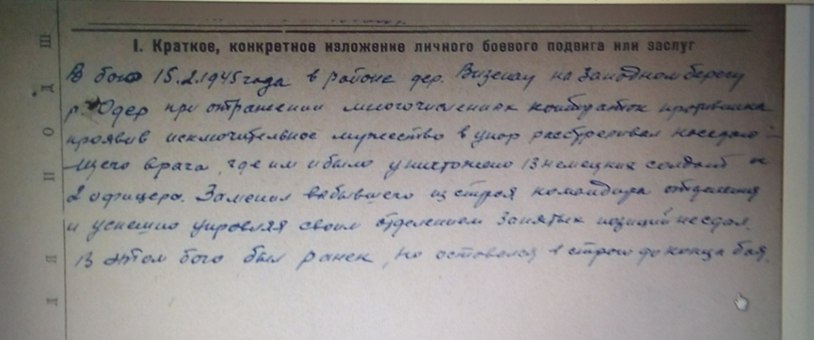 I. Краткое, конкретное изложение личного боевого подвига или заслуг
В бою 15.2.1945 года в районе дер. Визенау на западном берегу
р. Одер при отражении многочисленных контратак противника
проявив исключительное мужество в упор расстреливал наседаю-
-щего врага, где им и было уничтожено 13 немецких солдат и
2 офицера. Заменил выбывшего из строя командира отделения
и успешно управляя своим отделением занятых позиций не сдал.
В этом бою был ранен, но оставался в строю до конца боя.
Д Л Я П О Д Ш